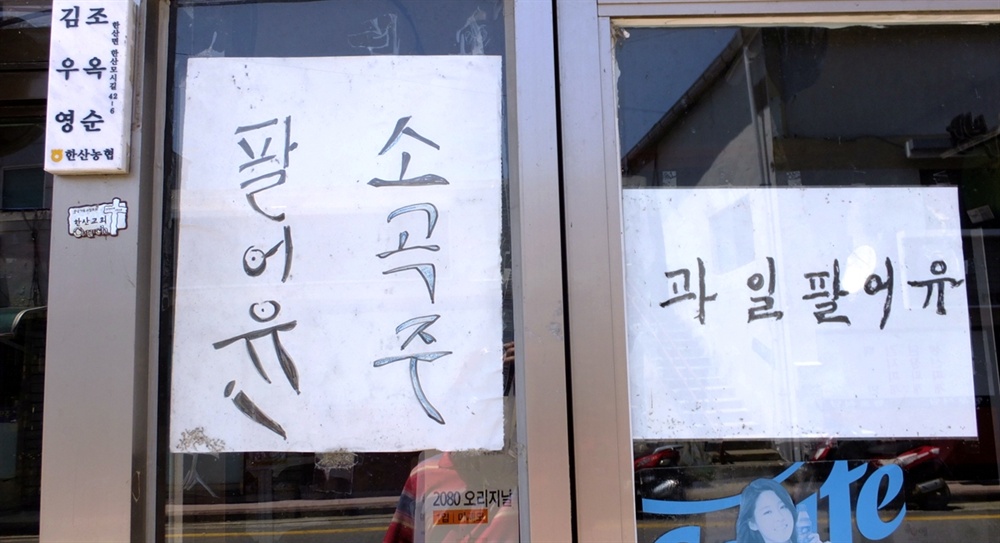 한산면 한산모시길 42-6
조옥순
김우영
한산농협
한산교회
소곡주
팔어유!
과일팔어유
2080 오리지날